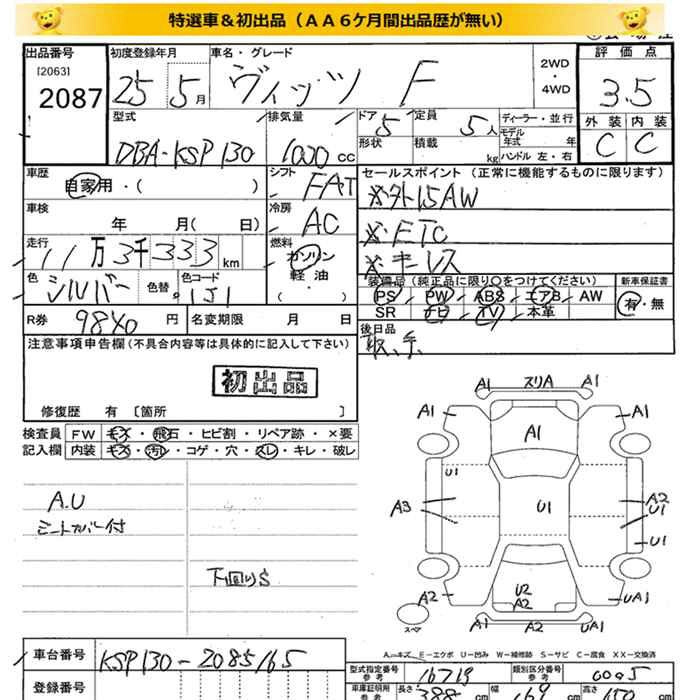 特選車＆初出品（ＡＡ６ケ月間出品歴が無い）
出品番号 初度登録年月 車名・グレード 評価点
[2063]
2087 25 5月 ヴィッツ F 2WD・4WD 3.5
型式 排気量 ドア 定員 ディーラー・並行 外装 内装
DBA-KSP130 1000cc 5 5人 モデル年式 年 C C
形状 積載 kg ハンドル 左・右
車歴 シフト セールスポイント（正常に機能するものに限ります）
自家用・( ) FAT ※外15AW
車検 冷房 ※ETC
年 月( 日) AC ※キーレス
走行 燃料
11万3千333km ガソリン
軽油
・( )
色 色替 色コード
シルバー 1J1
装備品（純正品に限り○をつけてください） 新車保証書
PS PW ABS エアB AW 有・無
SR ナビ TV 本革
R券 9840円 名変期限 月 日 後日品
取，手
注意事項申告欄(不具合内容等は具体的に記入して下さい)
初出品
修復歴 有〔箇所 〕
検査員 FW キズ・飛石・ヒビ割・リペア跡・×要
記入欄 内装 キズ・汚レ・コゲ・穴・スレ・キレ・破レ
A.U
ミラーカバー付
下回りS
A1 スリA A1
A1 A1 A1
U1
A3 U1 A2
U1
U1
U2
A2 A2 UA1
スペア A1 A2 U1
A...キズ E...エクボ U...凹み W...補修跡 S...サビ C...腐食 XX...交換済
車台番号 KSP130-2085165
型式指定番号 参考 16719 類別区分番号 参考 0005
登録番号 車庫証明用 参考 長さ 388 cm 幅 169 cm 高さ 150 cm